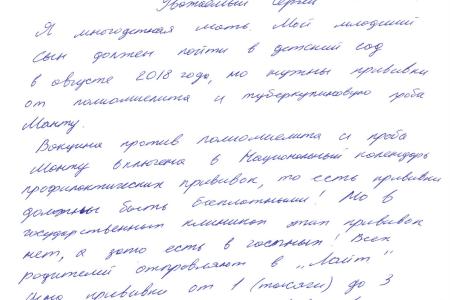 Уважаемый Сергей
Я многодетная мать. Мой младший
сын должен пойти в детский сад
в августе 2018 года, но нужны прививки
от полиомиелита и туберкулиновую проба
Манту.
Вакцина против полиомиелита и проба
Манту включена в Национальный календарь
профилактических прививок, то есть прививки
должны быть бесплатными! Но в
государственных клиниках этих прививок
нет, а зато есть в частных! Всех
родителей отправляют в „Лайт"
Цена прививки от 1 (тысячи) до 3